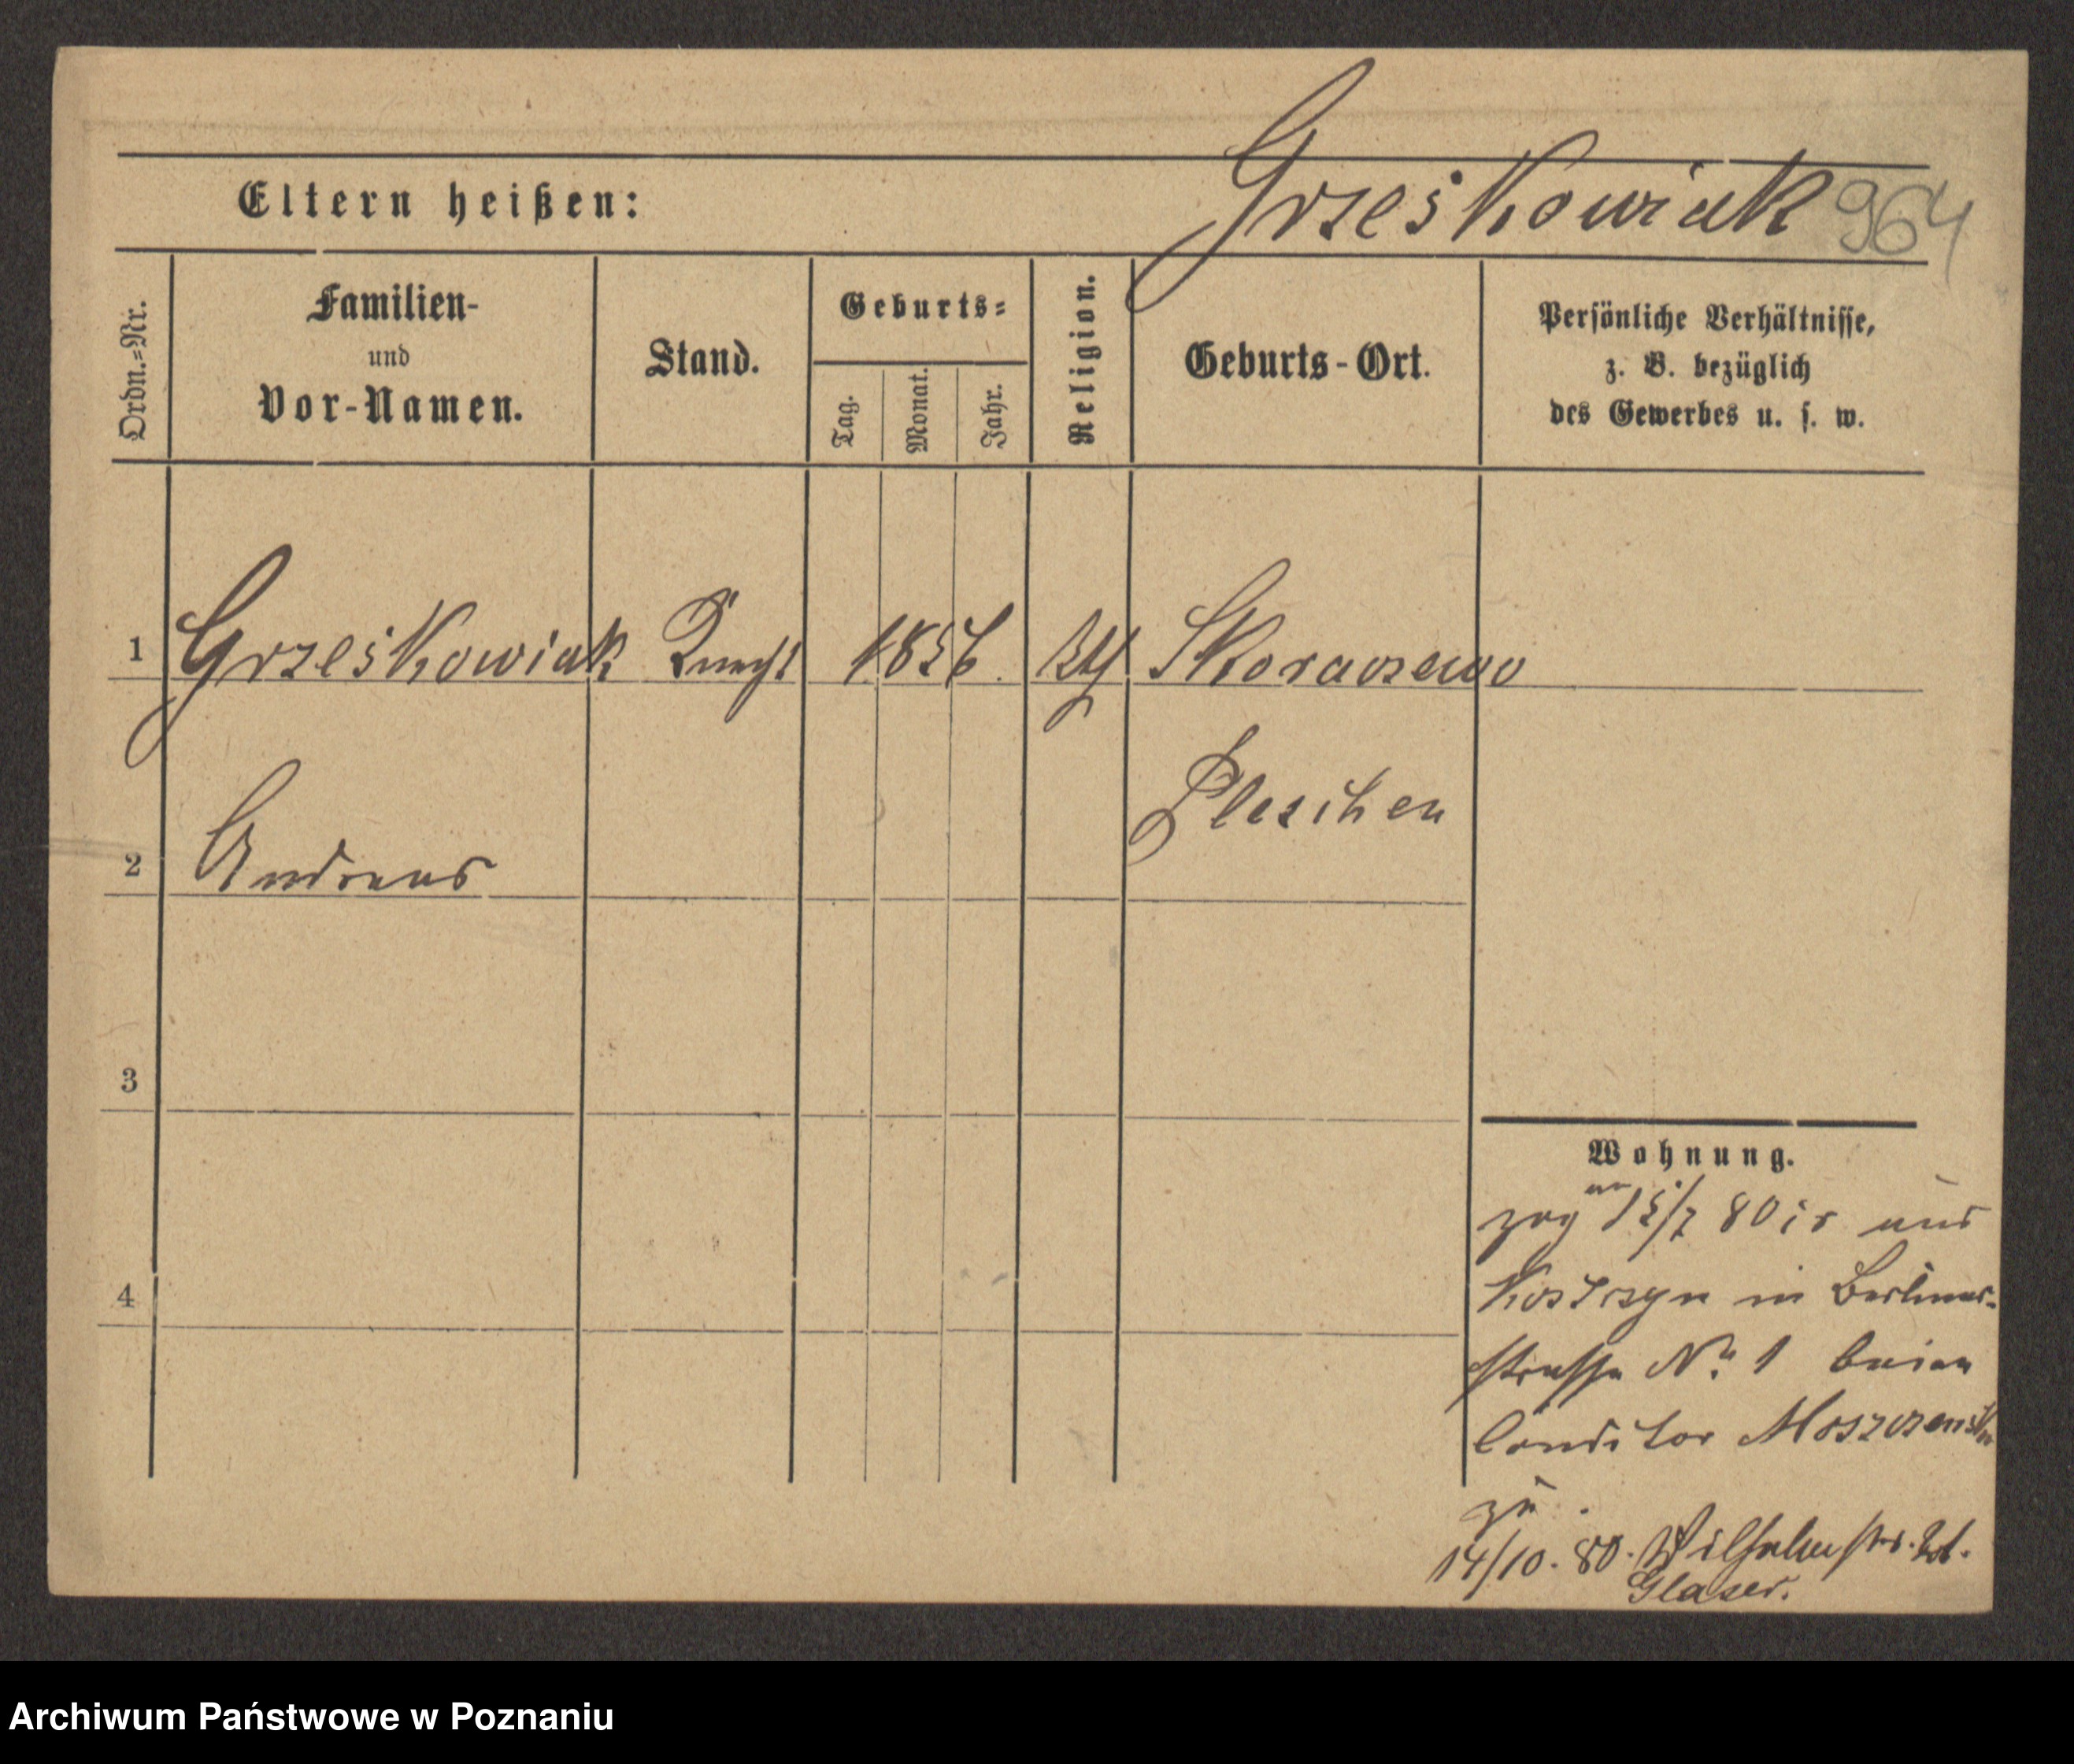 Eltern heißen:
Grześkowiak 964
Ordn.=Nr.
Familien-
und
Vor-Namen.
Stand.
Geburts=
Tag.
Monat.
Jahr.
Religion.
Geburts-Ort.
Persönliche Verhältnisse,
z. B. bezüglich
des Gewerbes u. s. w.
1 Grześkowiak Knecht 1856.
Pleschen
2 Andreas
3
4
Wohnung.
zog am 15/7 80 aus
Kostrzyn in Berliner-
strasse No. 1 beim
Conditor
zu.
14/10. 80. Wilhelmstr.
Glaser.
Archiwum Państwowe w Poznaniu